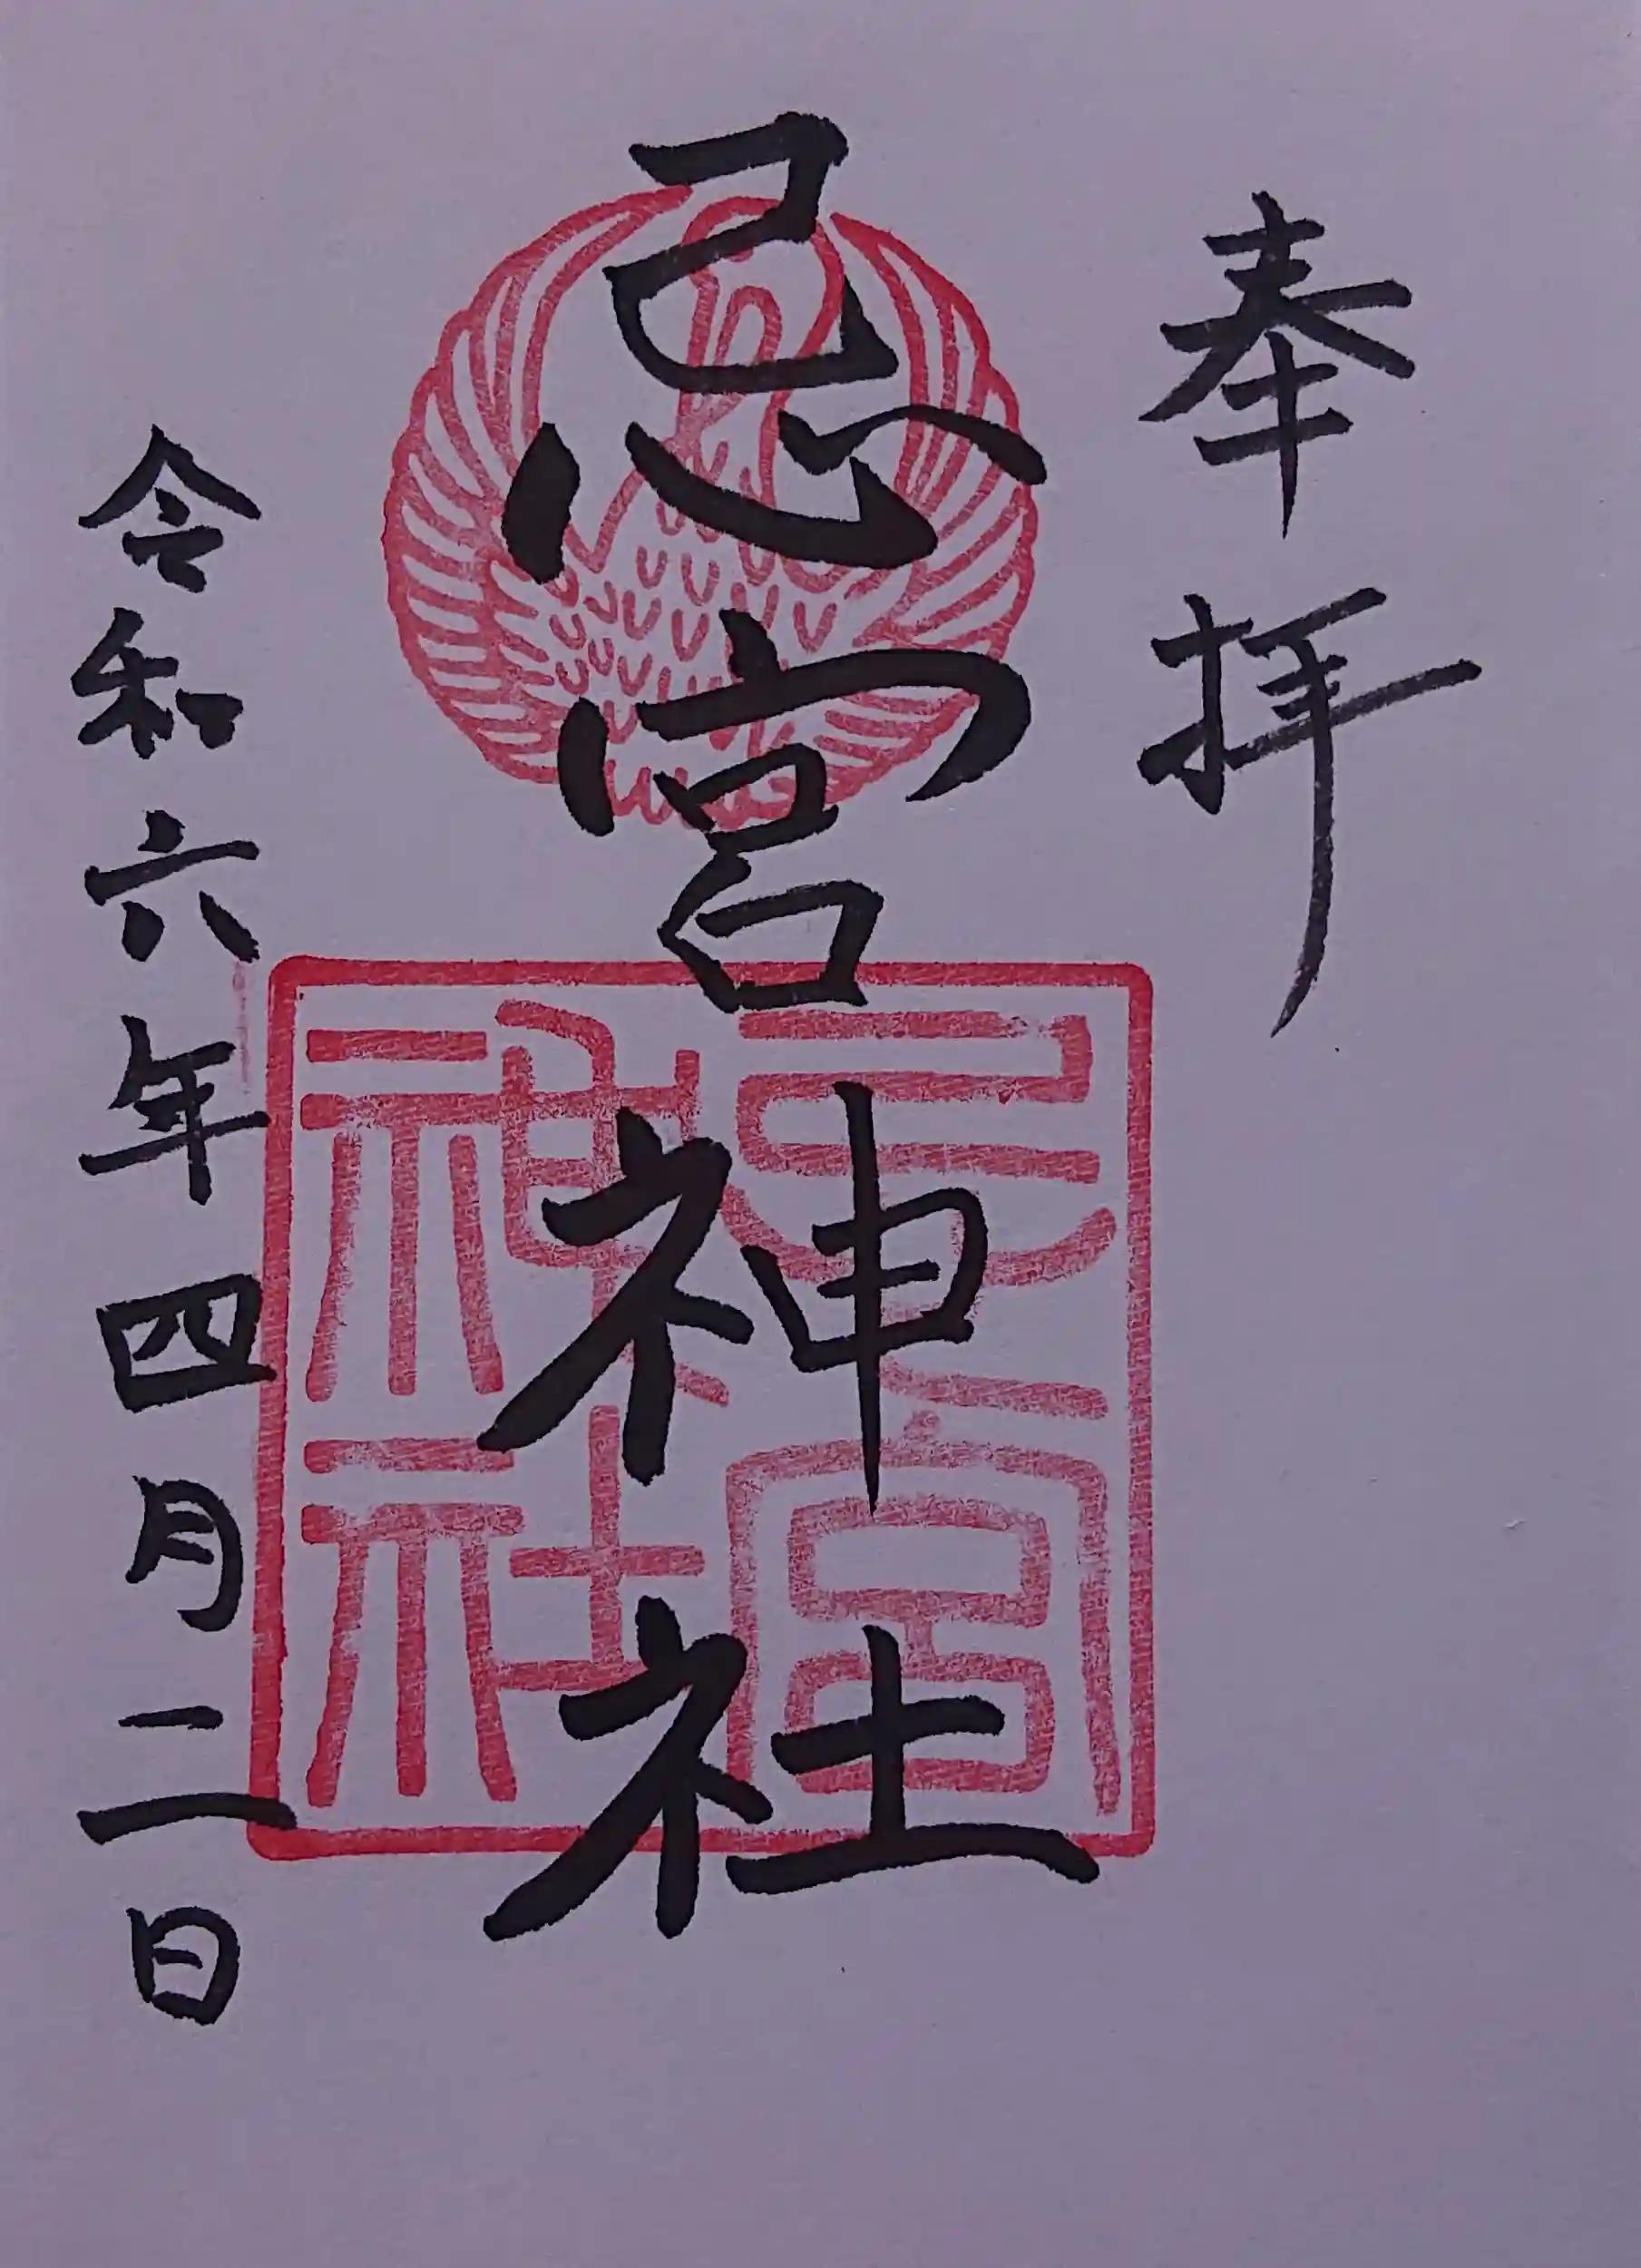 奉拝
忌宮神社
忌宮
神社
令和六年四月二日